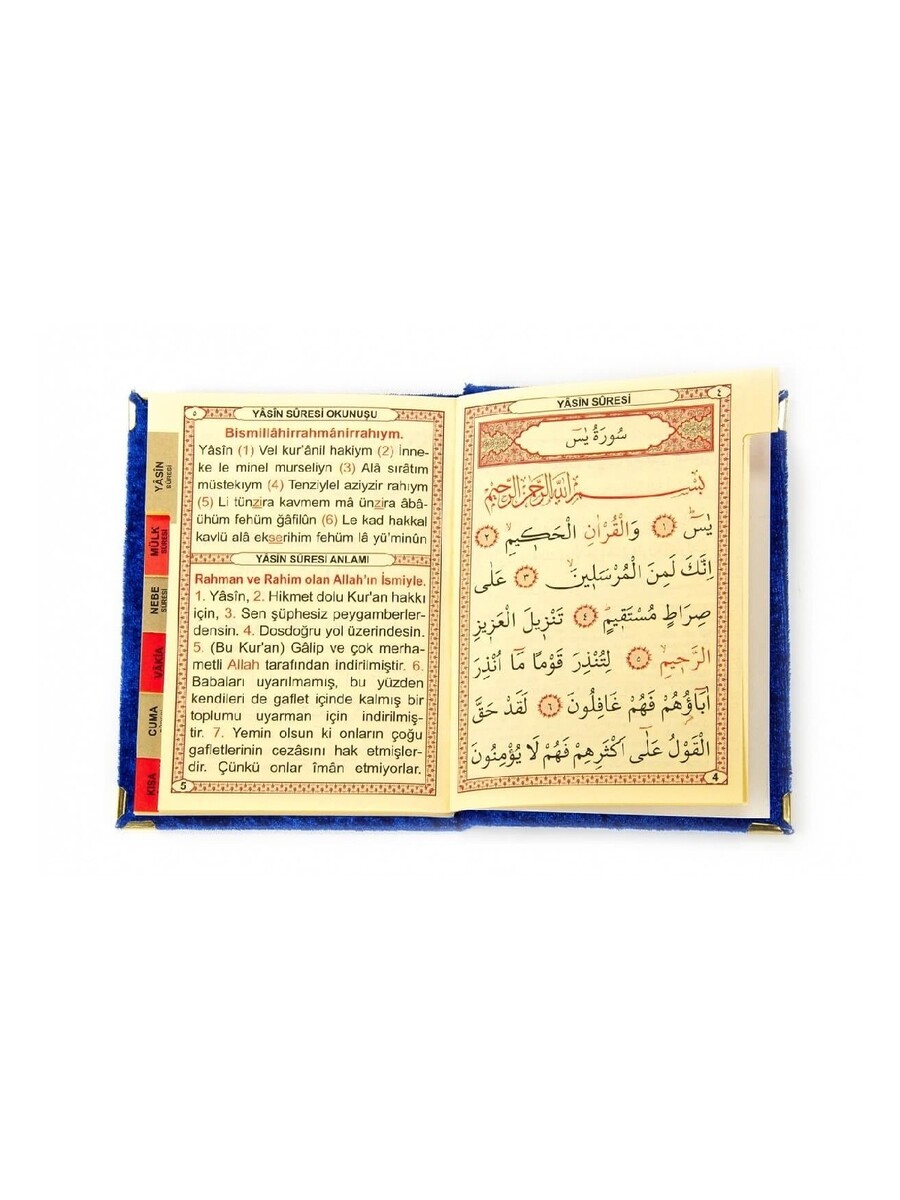 YÂSİN SÛRESİ
٤
سُورَةُ يٰسٓ
بِسْــــمِ اللّٰهِ الرَّحْمٰنِ الرَّحٖيمِ
يٰسٓ ۚ ﴿١﴾ وَالْقُرْاٰنِ الْحَكٖيمِ ۙ ﴿٢﴾
اِنَّكَ لَمِنَ الْمُرْسَلٖينَ ۙ ﴿٣﴾ عَلٰى
صِرَاطٍ مُسْتَقٖيمٍ ؕ ﴿٤﴾ تَنْزٖيلَ الْعَزٖيزِ
الرَّحٖيمِ ۙ ﴿٥﴾ لِتُنْذِرَ قَوْمًا مَٓا اُنْذِرَ
اٰبَٓاؤُ۬هُمْ فَهُمْ غَافِلُونَ ﴿٦﴾ لَقَدْ حَقَّ
الْقَوْلُ عَلٰٓى اَكْثَرِهِمْ فَهُمْ لَا يُؤْمِنُونَ
4
٥
YÂSİN SÛRESİ OKUNUŞU
Bismillâhirrahmânirrahıym.
Yâsîn (1) Vel kur'ânil hakiym (2) İnne-
ke le minel murseliyn (3) Alâ sırâtım
müstekıym (4) Tenziylel aziyzir rahıym
(5) Li tünzira kavmem mâ ünzira âbâ-
ühüm fehüm ğâfilûn (6) Le kad hakkal
kavlü alâ ekserihim fehüm lâ yü'minûn
YÂSİN SÛRESİ ANLAMI
Rahman ve Rahim olan Allah'ın İsmiyle.
1. Yâsîn, 2. Hikmet dolu Kur'an hakkı
için, 3. Sen şüphesiz peygamberler-
densin. 4. Dosdoğru yol üzerindesin.
5. (Bu Kur'an) Gâlip ve çok merha-
metli Allah tarafından indirilmiştir. 6.
Babaları uyarılmamış, bu yüzden
kendileri de gaflet içinde kalmış bir
toplumu uyarman için indirilmiş-
tir. 7. Yemin olsun ki onların çoğu
gafletlerinin cezâsını hak etmişler-
dir. Çünkü onlar îmân etmiyorlar.
5
YÂSİN
SÛRESİ
MÜLK
SÛRESİ
NEBE
SÛRESİ
VÂKIA
CUMA
KISA